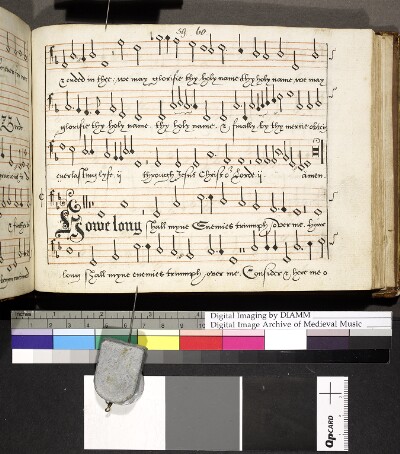 59 60
& ended in thee: we may glorifie thy holy name thy holy name we may
glorifie thy holy name. thy holy name. & finally by thy mercie obtey
everlasting lyfe. ij through Jesus Christ or Lorde. ij. amen.
Howe long shall myne Enemies triumph over me. howe
long shall myne enemies triumph over me. Consider & here me o
inches
Digital Imaging by DIAMM
Digital Image Archive of Medieval Music
QPCARD